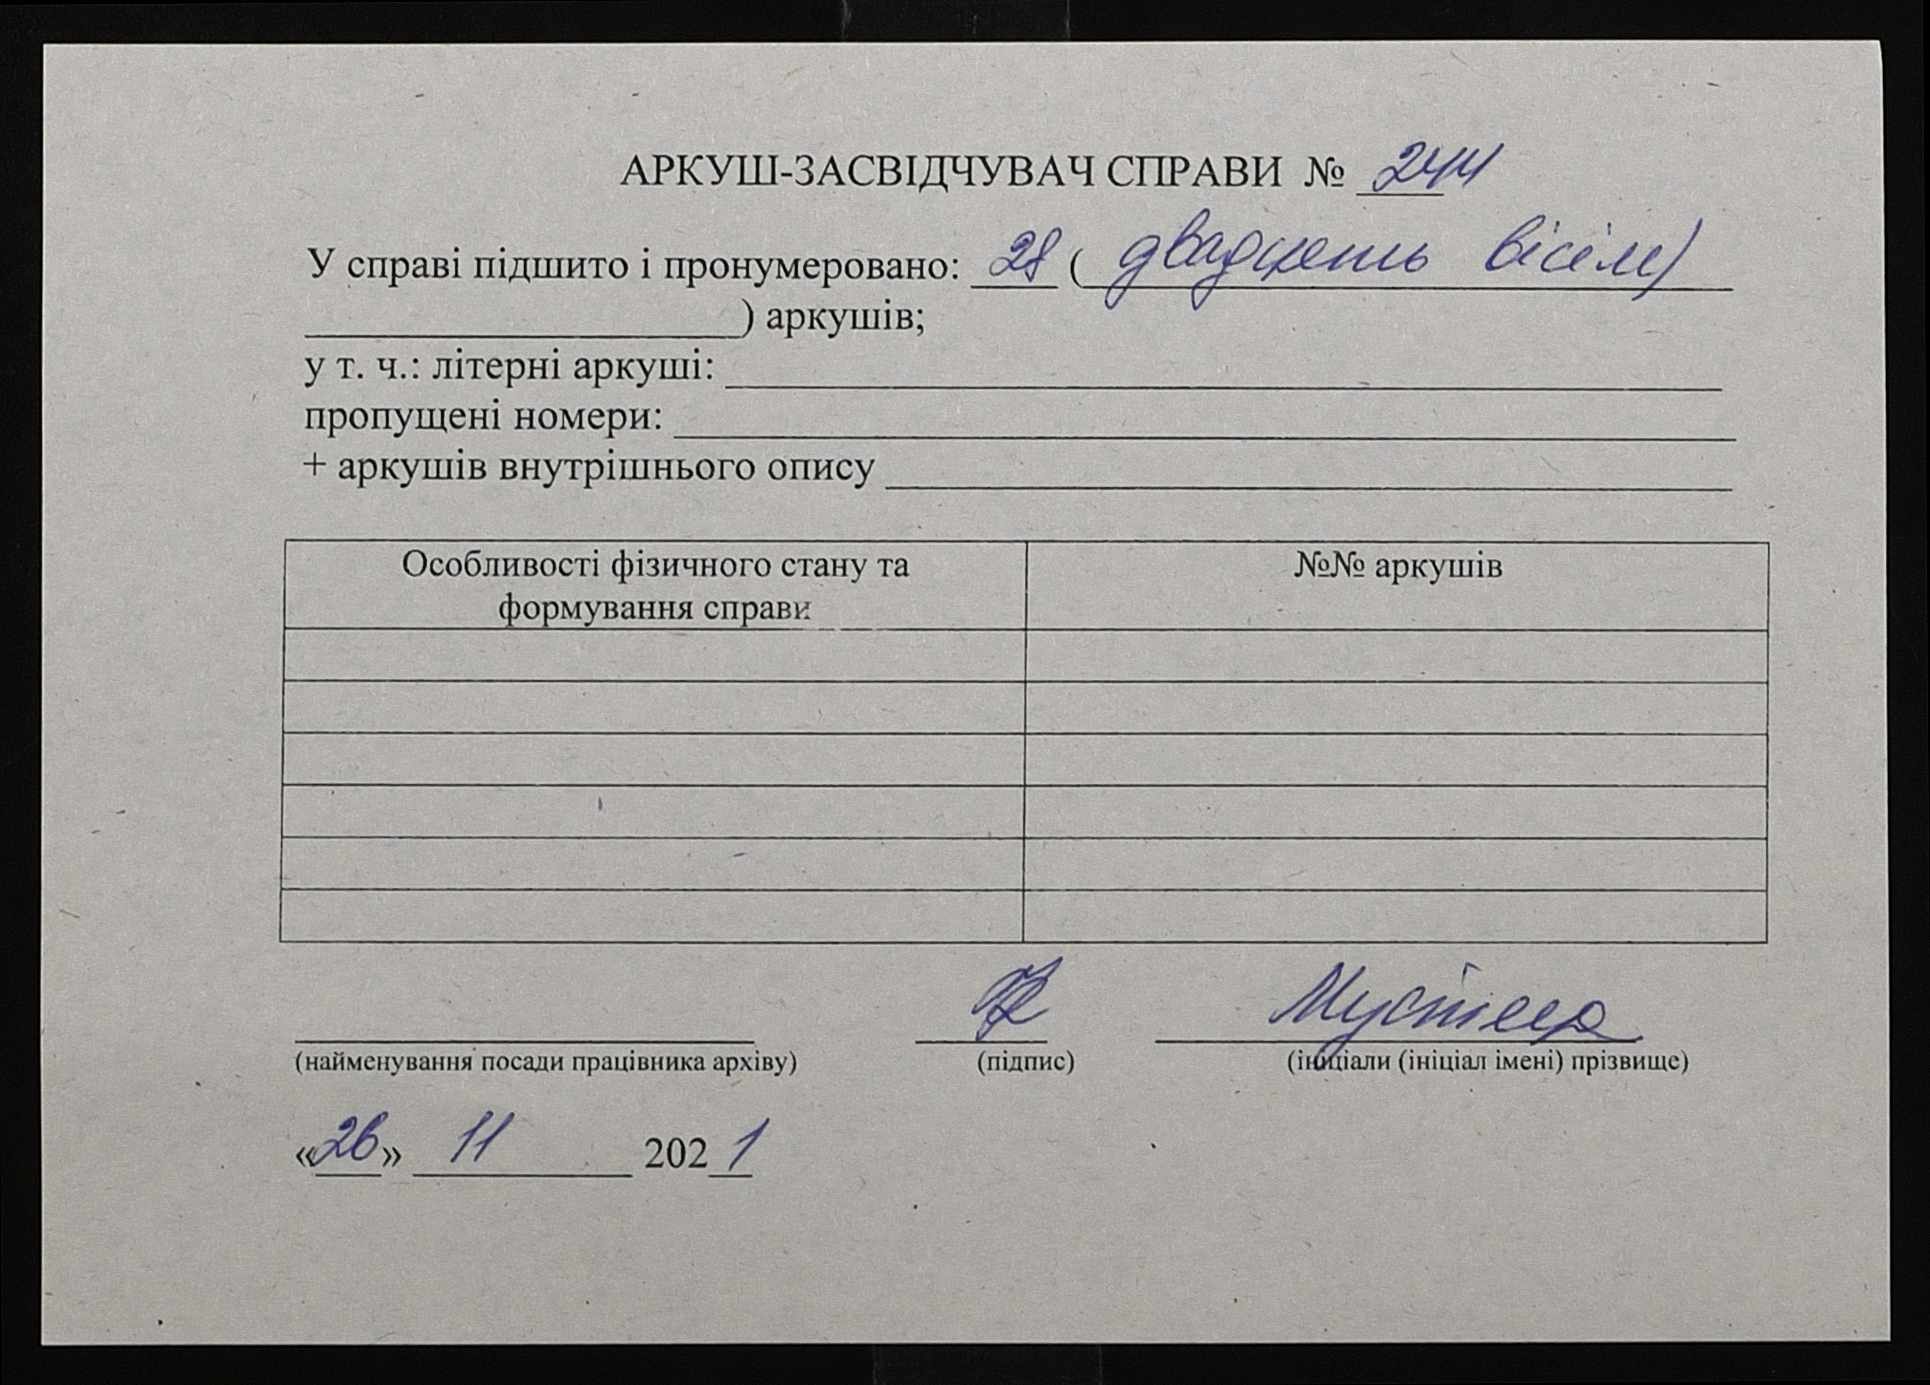 АРКУШ-ЗАСВІДЧУВАЧ СПРАВИ № 244
У справі підшито і пронумеровано: 28 ( двадцять вісім)
) аркушів;
у т. ч.: літерні аркуші:
пропущені номери:
+ аркушів внутрішнього опису
Особливості фізичного стану та
формування справи
№№ аркушів
(найменування посади працівника архіву) (підпис) (ініціали (ініціал імені) прізвище)
«26» 11 2021